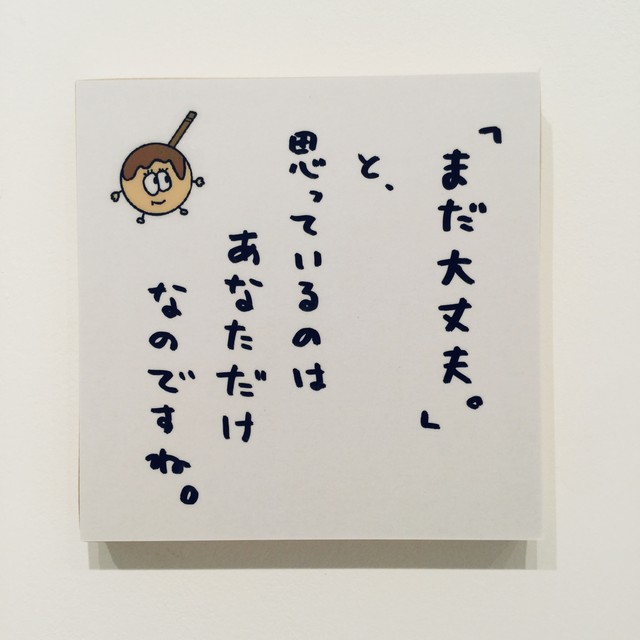 「まだ大丈夫。」
と、
思っているのは
あなただけ
なのですね。